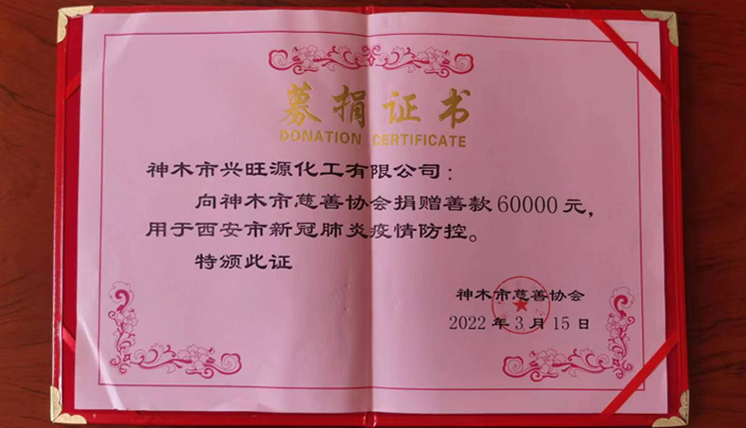 募捐证书
DONATION CERTIFICATE
神木市兴旺源化工有限公司：
向神木市慈善协会捐赠善款60000元，
用于西安市新冠肺炎疫情防控。
特颁此证
神木市慈善协会
2022年3月15日